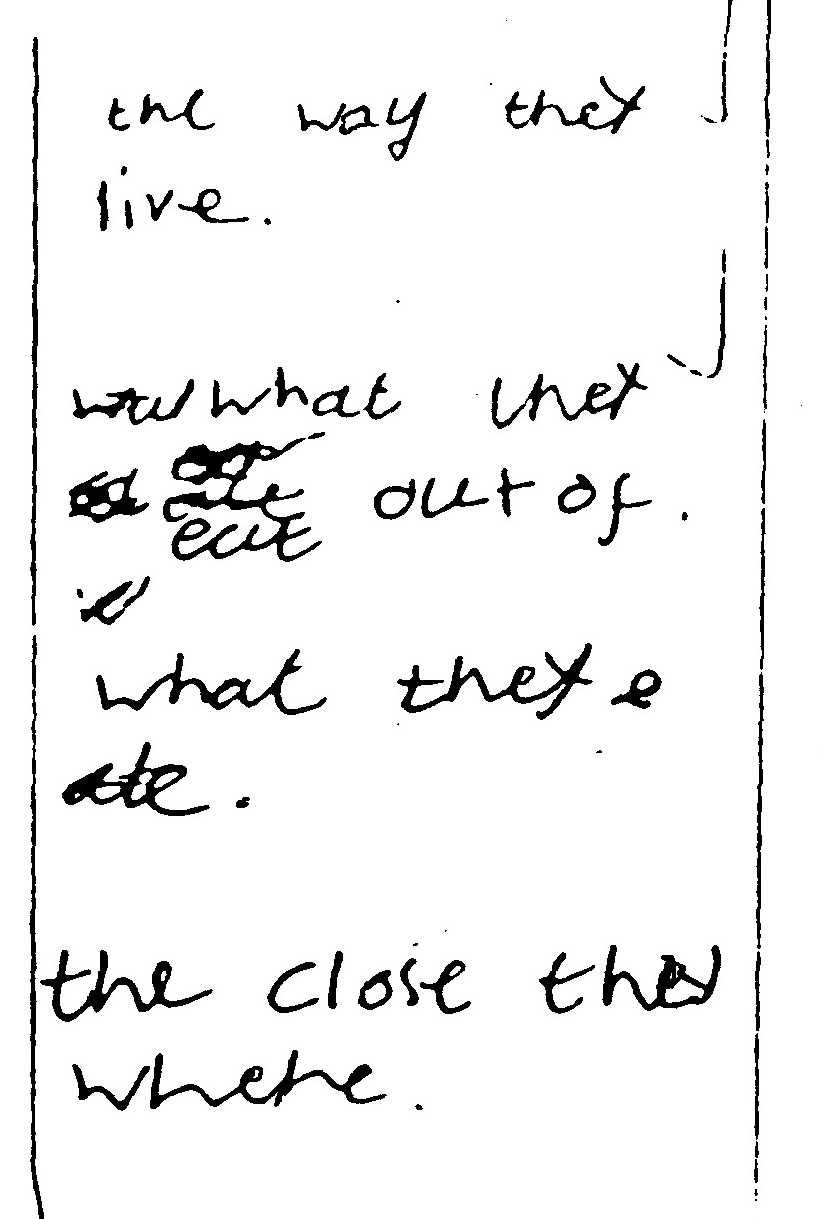 the way they
live.
what they
eat out of.
what they e
ate.
the close they
where.